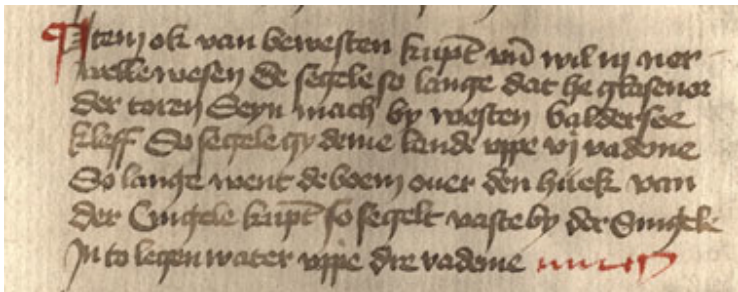 Item ok van bewesten kumpt vn̄ wil in nor
welke wesen de segele so lange dat he glasenor
der toren Seyn mach by westen baldersoe
kleff So segele gy deme lande vppe vj vademe
So lange went de boem ouer den huek van
der Cingele kumpt so segelt vaste by der Singele
In to legen water vppe dre vademe